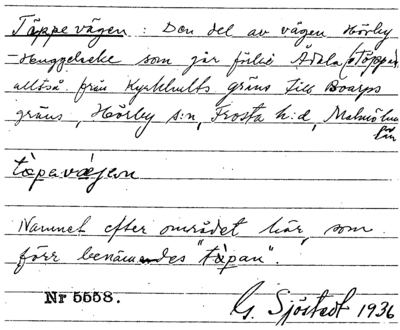 Täppevägen : Den del av vägen Hörby
-Hänggelseke som går förbi Ådala (o Täppan)
alltså från Kyrkhults gräns till Boarps
gräns, Hörby s:n, Frosta h:d, Malmöhus
län
tàpavä̀jen
Namnet efter området här, som
förr benämndes "tàpan".
Nr 5558.
G. Sjöstedt 1936